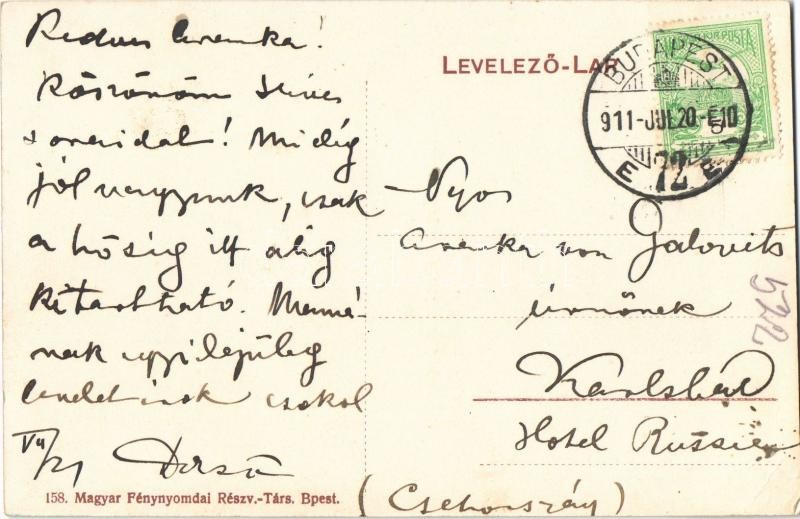 Kedves Aranka!
Köszönöm szives
soraidat! Midig
jól vagyunk, csak
a hőség itt alig
kitartható. Mamá-
nak ugyilejüleg
csokol
VII/21
158. Magyar Fénynyomdai Részv.-Társ. Bpest.
LEVELEZŐ-LAP
BUDAPEST
911-JUL 20.-E10
72
Nyos
Aranka von Jalovits
úrnőnek
Karlsbad
Hotel Russie
(Csehország)
522